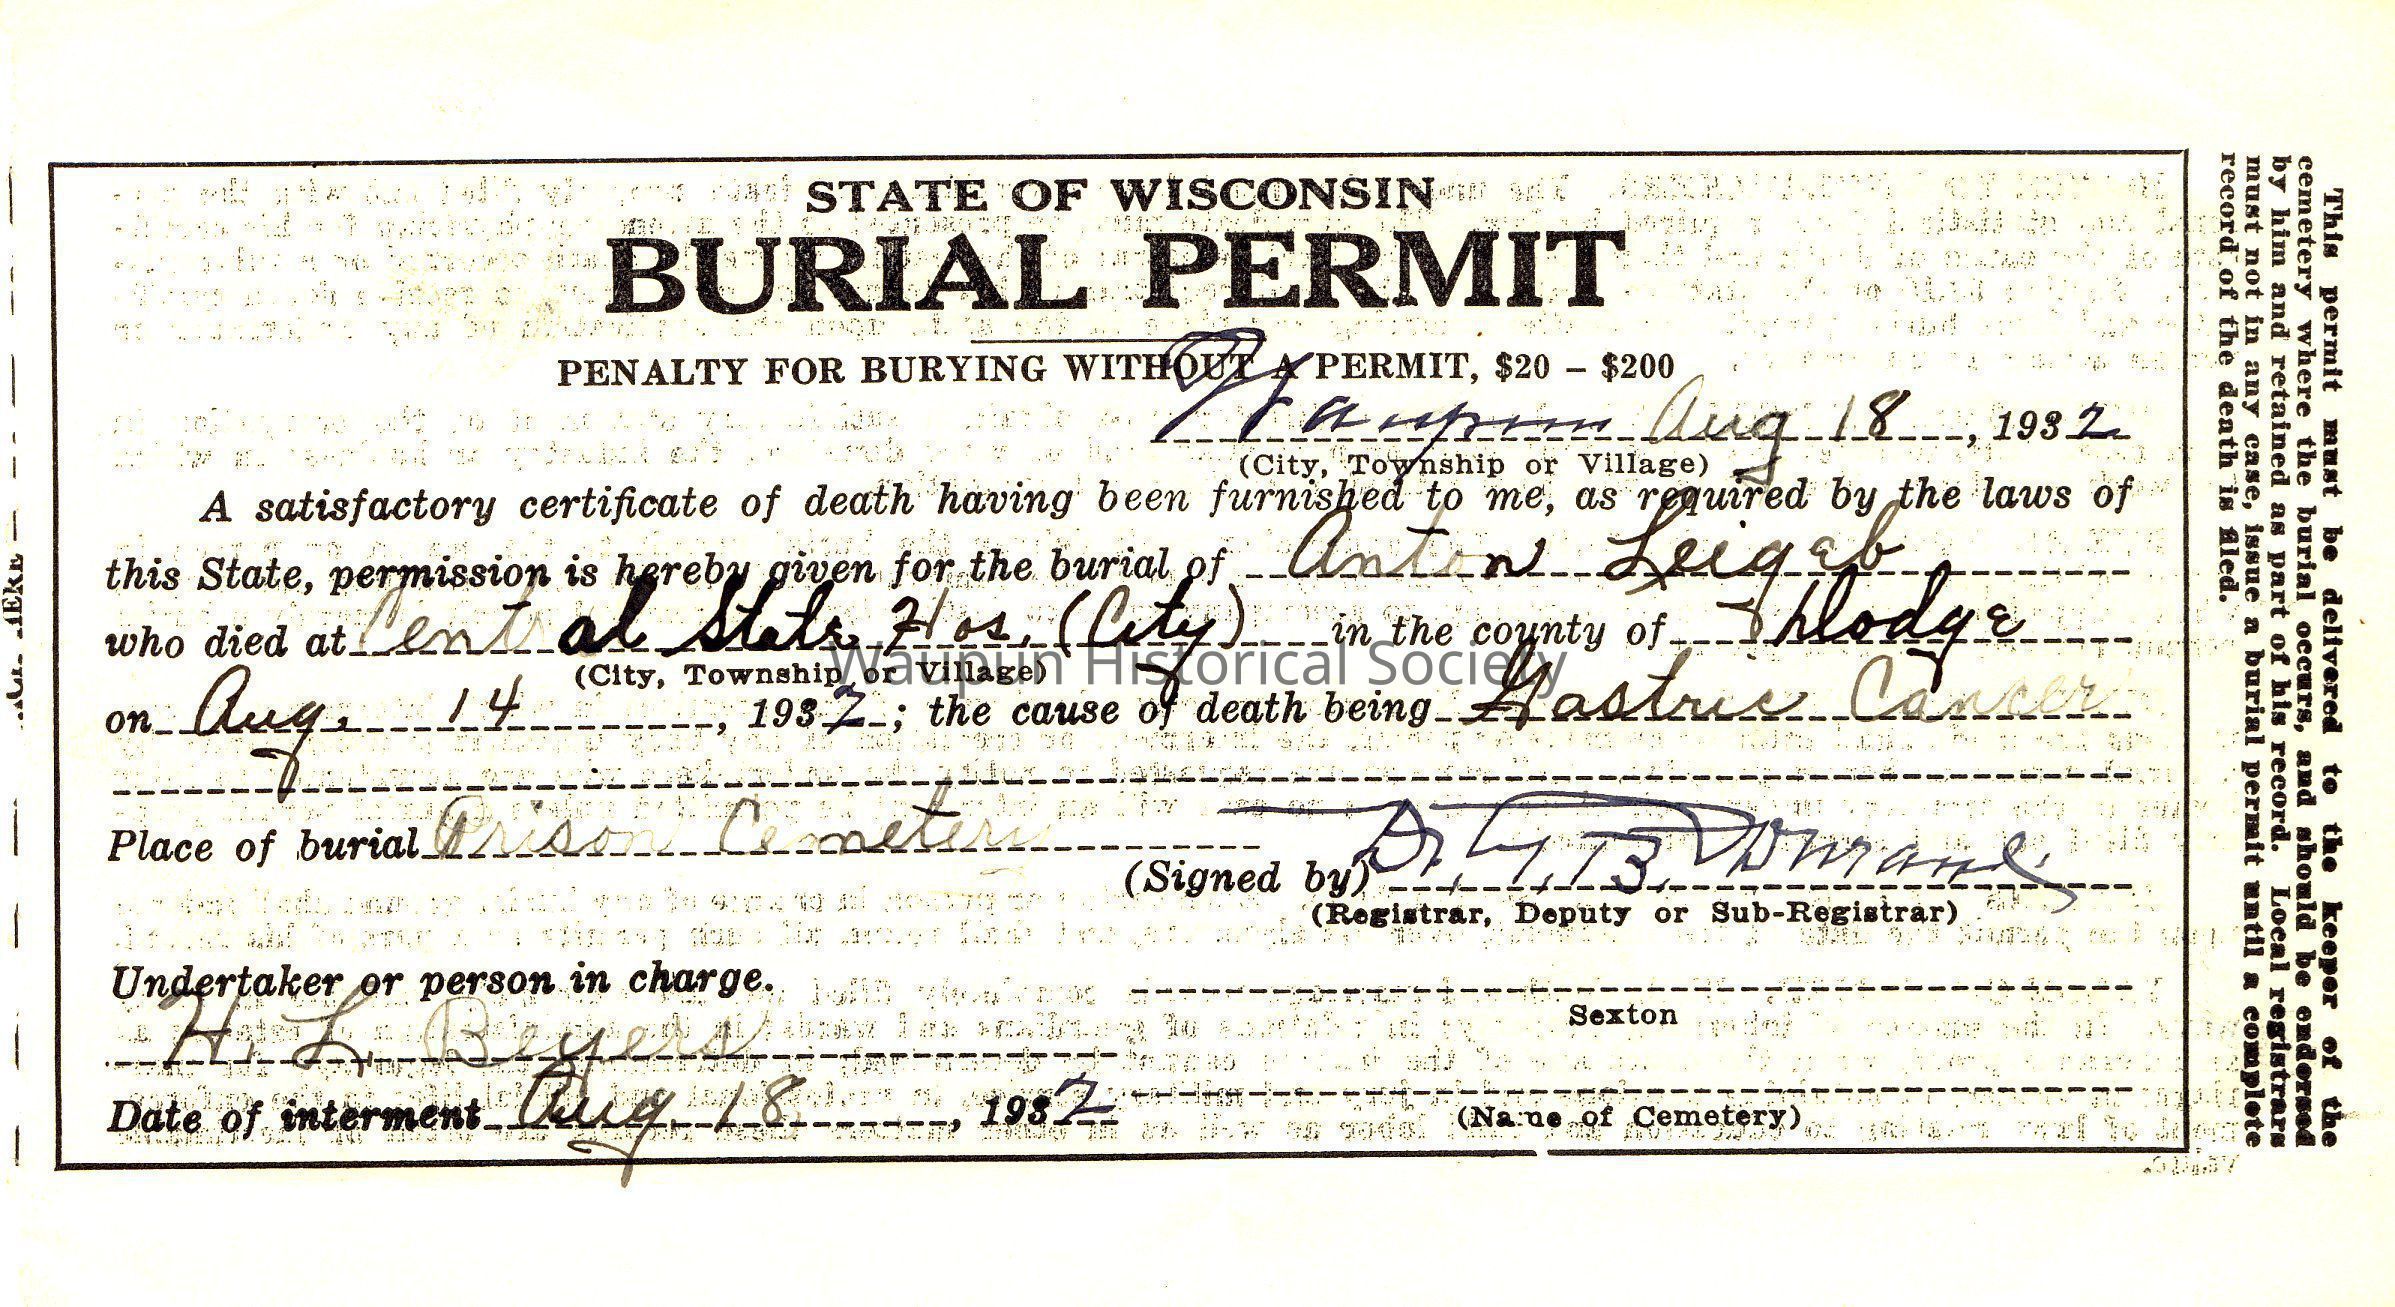 STATE OF WISCONSIN
BURIAL PERMIT
PENALTY FOR BURYING WITHOUT A PERMIT, $20 – $200
Waupun Aug 18, 1932
(City, Township or Village)
A satisfactory certificate of death having been furnished to me, as required by the laws of
this State, permission is hereby given for the burial of Anton Leigeb
who died at Central State Hos. (City) in the county of Dodge
(City, Township or Village)
on Aug. 14, 1932; the cause of death being Gastric Cancer
Place of burial Prison Cemetery
(Signed by) Dr.
(Registrar, Deputy or Sub-Registrar)
Undertaker or person in charge.
Sexton
H. L. Beyers
Date of interment Aug 18, 1932
(Name of Cemetery)
This permit must be delivered to the keeper of the
cemetery where the burial occurs, and should be endorsed
by him and retained as part of his record. Local registrars
must not in any case, issue a burial permit until a complete
record of the death is filed.
Waupun Historical Society